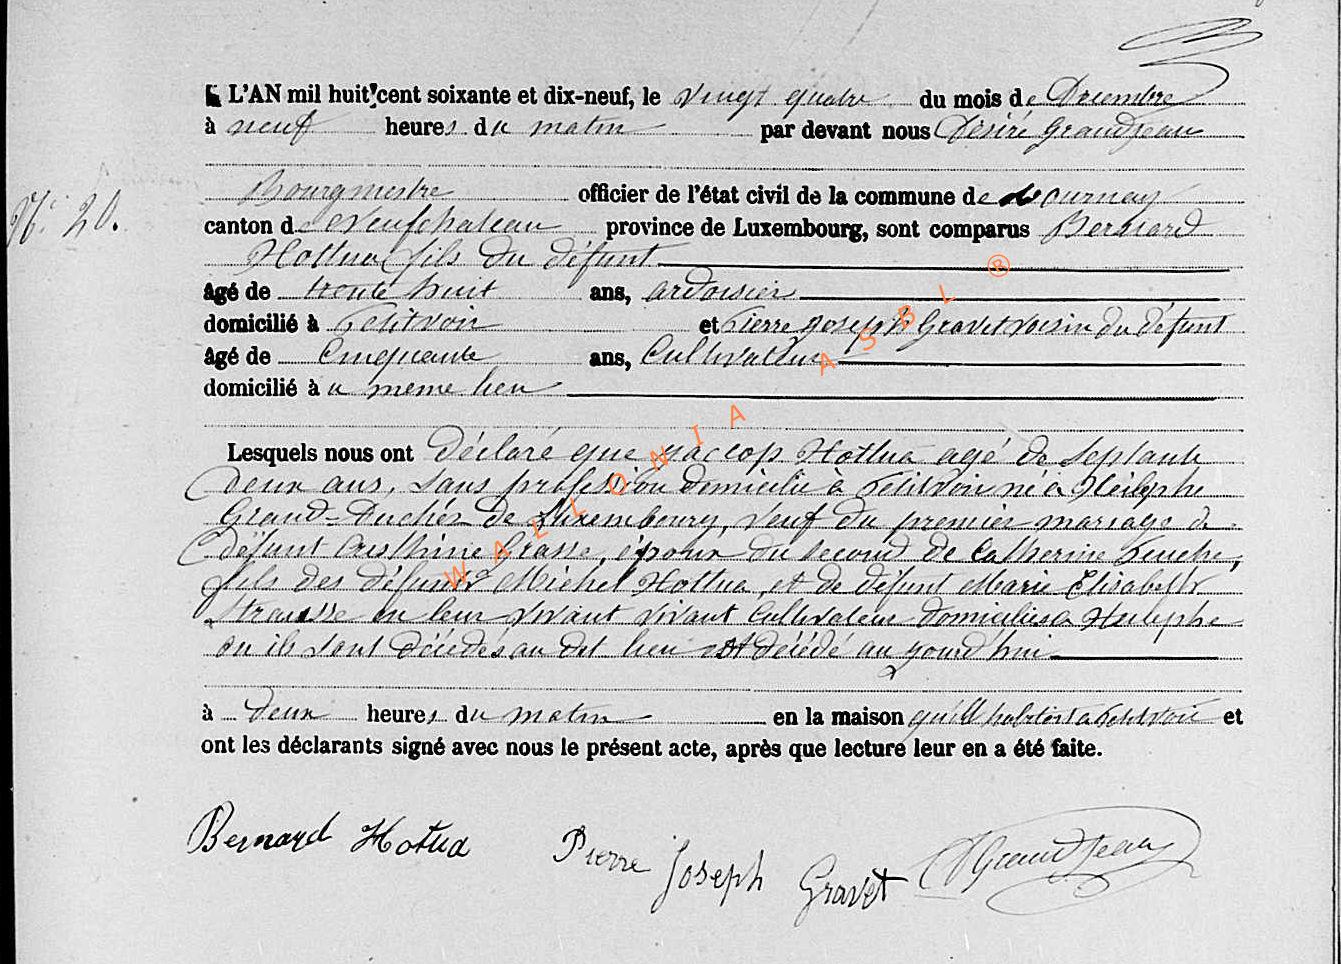 L'AN mil huit cent soixante et dix-neuf, le vingt quatre du mois de Décembre
à neuf heures du matin par devant nous Désiré Grandjean
Bourgmestre officier de l'état civil de la commune de Tournay
N° 20.
canton de Neufchateau province de Luxembourg, sont comparus Bernard
Hottua fils du défunt
âgé de trente huit ans, ardoisier
domicilié à Petitvoir et Pierre Joseph Gravet voisin du défunt
âgé de Cinquante ans, Cultivateur
domicilié à u meme lieu
Lesquels nous ont déclaré que Jaccop Hottua agé de Septante
deux ans, Sans profession domicilié à Petitvoir né a
Grand-Duchéz de Luxembourg, veuf du premier mariage de
défunt Crasse, époux du second de Catherine
fils des défunts Michel Hottua et de défunt Marie Elisabeth
Strausse en leur vivant vivant Cultivateur domiciliés a
ou ils sont décédés au dit lieu est décédé au jourd'hui
à deux heures du matin en la maison qu'il habitait a Petitvoir et
ont les déclarants signé avec nous le présent acte, après que lecture leur en a été faite.
Bernard Hotua Pierre Joseph Gravet DGrandjean
WALLONIA ASBL ®